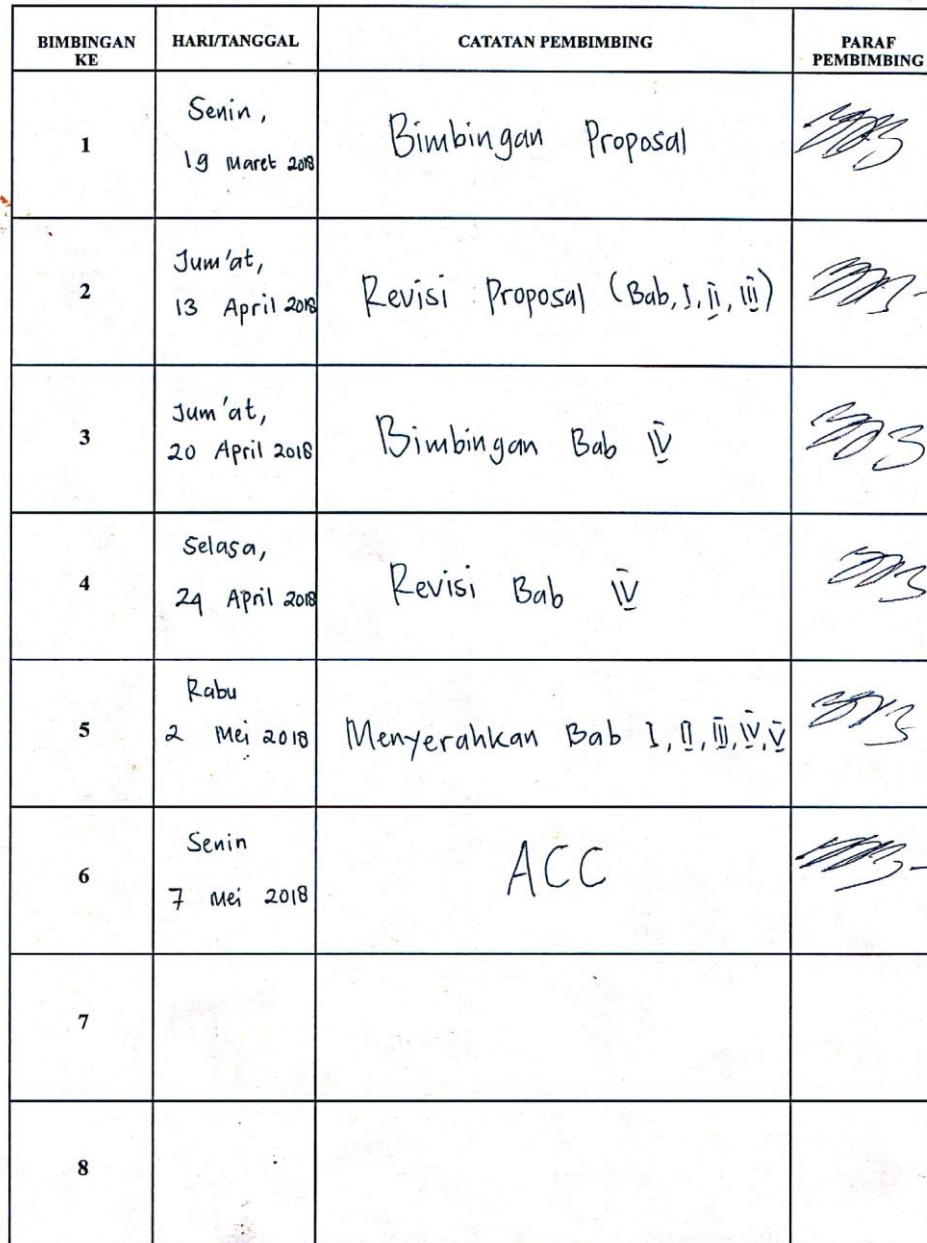 BIMBINGAN KE
HARI/TANGGAL
CATATAN PEMBIMBING
PARAF PEMBIMBING
1
Senin,
19 Maret 2018
Bimbingan Proposal
2
Jum'at,
13 April 2018
Revisi Proposal (Bab, I, II, III)
3
Jum'at,
20 April 2018
Bimbingan Bab IV
4
Selasa,
24 April 2018
Revisi Bab IV
5
Rabu
2 Mei 2018
Menyerahkan Bab I, II, III, IV, V
6
Senin
7 Mei 2018
ACC
7
8